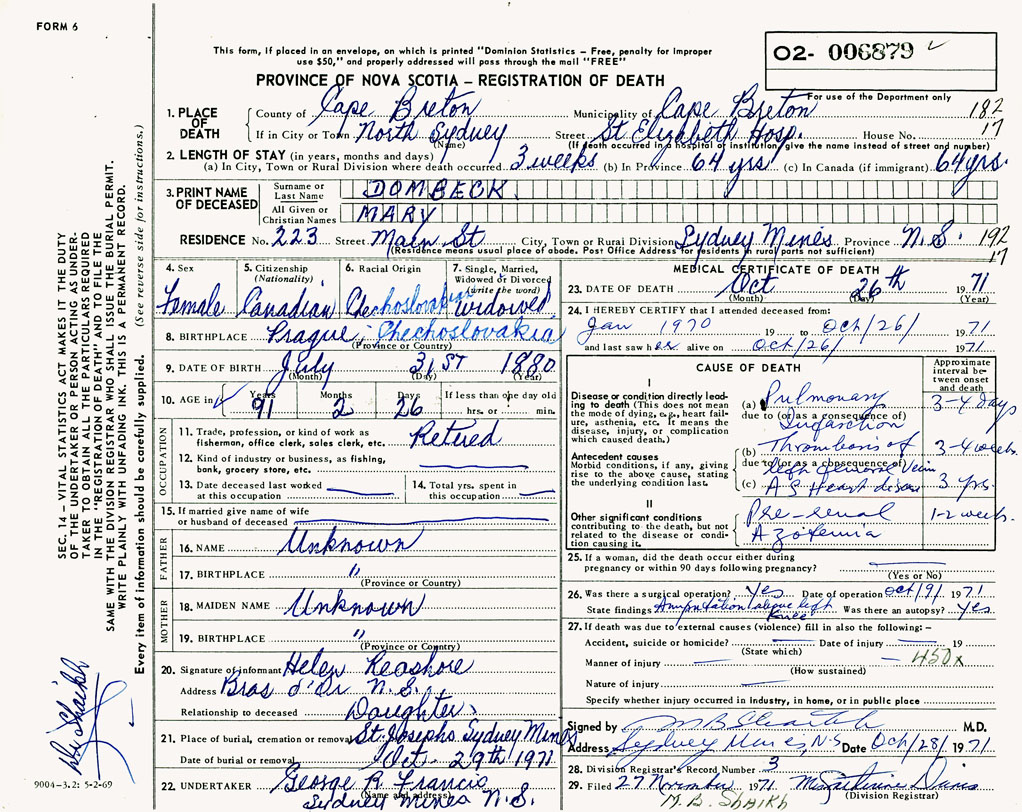 FORM 6
This form, if placed in an envelope, on which is printed "Dominion Statistics – Free, penalty for improper
use $50," and properly addressed will pass through the mail "FREE"
O2- 006879
PROVINCE OF NOVA SCOTIA – REGISTRATION OF DEATH
For use of the Department only
1. PLACE OF DEATH County of Cape Breton Municipality of Cape Breton 182
If in City or Town North Sydney Street St Elizabeth Hosp. House No. 17
(Name) (If death occurred in a hospital or institution, give the name instead of street and number)
2. LENGTH OF STAY (in years, months and days)
(a) In City, Town or Rural Division where death occurred 3 weeks (b) In Province 64 yrs (c) In Canada (if immigrant) 64 yrs.
3. PRINT NAME OF DECEASED Surname or Last Name DOMBECK
All Given or Christian Names MARY
RESIDENCE No. 223 Street Main St City, Town or Rural Division Sydney Mines Province N.S. 192
(Residence means usual place of abode. Post Office Address for residents in rural parts not sufficient) 17
4. Sex 5. Citizenship (Nationality) 6. Racial Origin 7. Single, Married, Widowed or Divorced (write the word)
Female Canadian Chechoslovakian widowed
8. BIRTHPLACE Prague, Chechoslovakia
(Province or Country)
9. DATE OF BIRTH July 31ST 1880
(Month) (Day) (Year)
10. AGE in Years Months Days If less than one day old
91 2 26 hrs. or min.
OCCUPATION
11. Trade, profession, or kind of work as fisherman, office clerk, sales clerk, etc. Retered
12. Kind of industry or business, as fishing, bank, grocery store, etc.
13. Date deceased last worked at this occupation 14. Total yrs. spent in this occupation
15. If married give name of wife or husband of deceased
FATHER
16. NAME Unknown
17. BIRTHPLACE "
(Province or Country)
MOTHER
18. MAIDEN NAME Unknown
19. BIRTHPLACE "
(Province or Country)
20. Signature of informant Helen Reashore
Address Bras d'Or N.S.
Relationship to deceased Daughter
21. Place of burial, cremation or removal St. Josephs Sydney Mines
Date of burial or removal Oct. 29th 1971
22. UNDERTAKER George R. Francis
(Name and address)
Sydney Mines N.S.
MEDICAL CERTIFICATE OF DEATH
23. DATE OF DEATH Oct 26th 1971
(Month) (Day) (Year)
24. I HEREBY CERTIFY that I attended deceased from:
Jan 1970 19 to Oct/26/ 1971
and last saw her alive on Oct/26/ 1971
CAUSE OF DEATH
Approximate interval between onset and death
I
Disease or condition directly leading to death (This does not mean the mode of dying, e.g., heart failure, asthenia, etc. It means the disease, injury, or complication which caused death.)
(a) Pulmonary 3-4 days
due to (or as a consequence of)
Infarction
Antecedent causes
Morbid conditions, if any, giving rise to the above cause, stating the underlying condition last.
(b) Thrombosis of 3-4 weeks
due to (or as a consequence of)
left femoral vein
(c) A S Heart disease 3 yrs.
II
Other significant conditions contributing to the death, but not related to the disease or condition causing it.
Pre-renal 1-2 weeks
Azotemia
25. If a woman, did the death occur either during pregnancy or within 90 days following pregnancy?
(Yes or No)
26. Was there a surgical operation? Yes Date of operation Oct/9/ 1971
State findings Amputation above left Knee Was there an autopsy? Yes
27. If death was due to external causes (violence) fill in also the following:–
Accident, suicide or homicide? Date of injury 19
(State which)
Manner of injury 450x
(How sustained)
Nature of injury
Specify whether injury occurred in industry, in home, or in public place
Signed by M B Shaikh M.D.
Address Sydney Mines, N-S Date Oct/28/ 1971
28. Division Registrar's Record Number 3
29. Filed 27 November 1971 Davis
(Division Registrar)
M. B. SHAIKH
SEC. 14 – VITAL STATISTICS ACT MAKES IT THE DUTY
OF THE UNDERTAKER OR PERSON ACTING AS UNDER-
TAKER TO OBTAIN ALL THE PARTICULARS REQUIRED
IN THE "REGISTRATION OF DEATH" AND TO FILE THE
SAME WITH THE DIVISION REGISTRAR WHO SHALL ISSUE THE BURIAL PERMIT.
WRITE PLAINLY WITH UNFADING INK. THIS IS A PERMANENT RECORD.
Every item of information should be carefully supplied. (See reverse side for instructions.)
Dr Shaikh
9004-3.2: 5-2-69